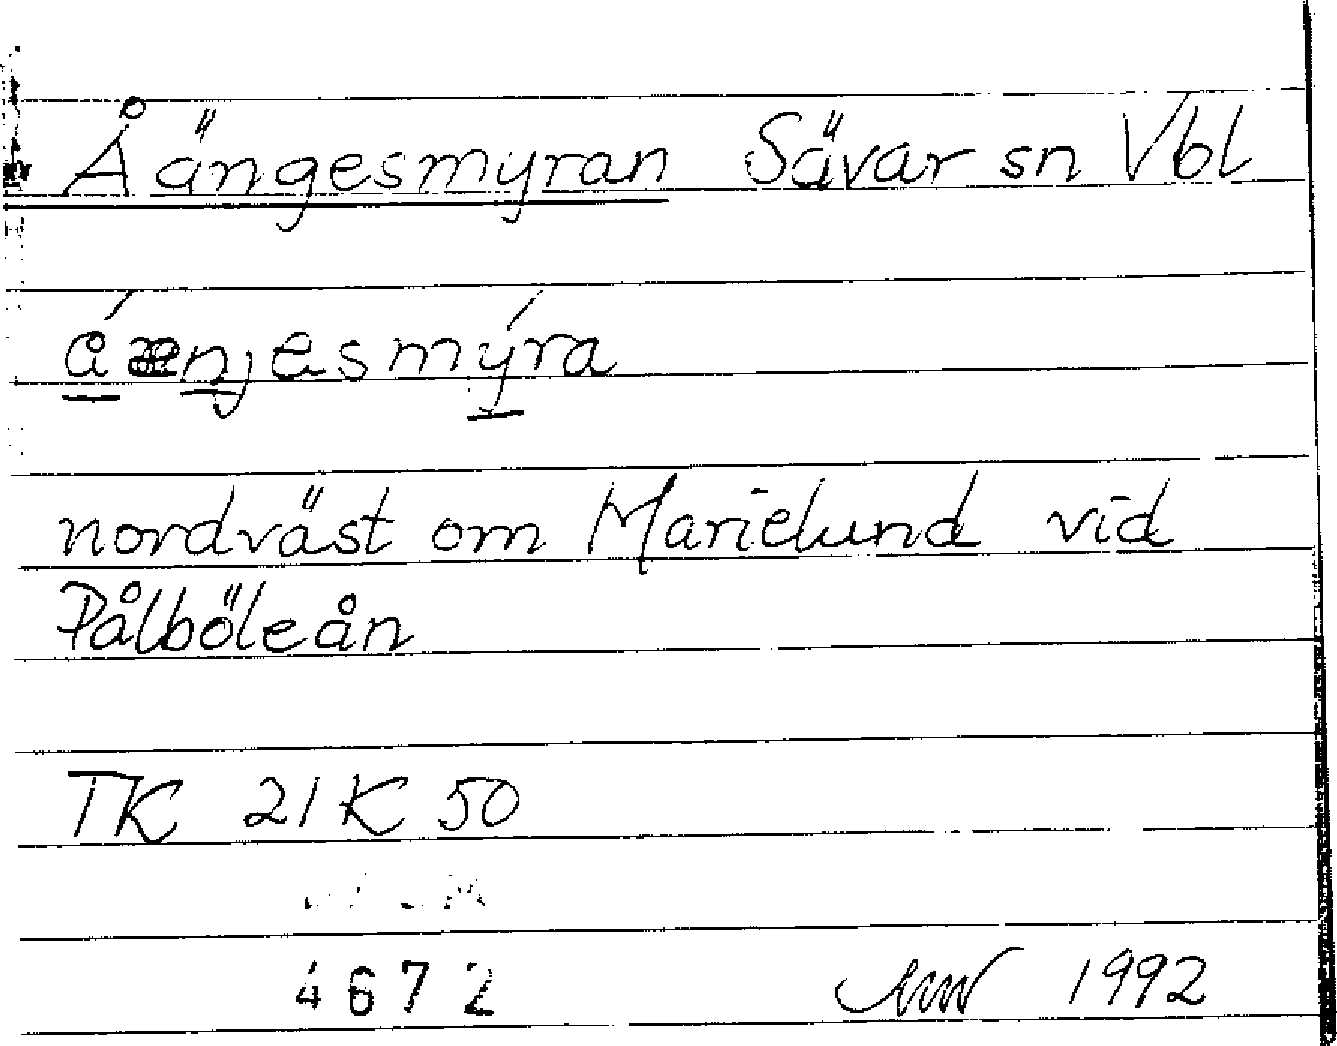 Åängesmyran Sävar sn Vbl
åænjesmýra
nordväst om Marielund vid
Pålböleån
TK 21K 50
4672
1992